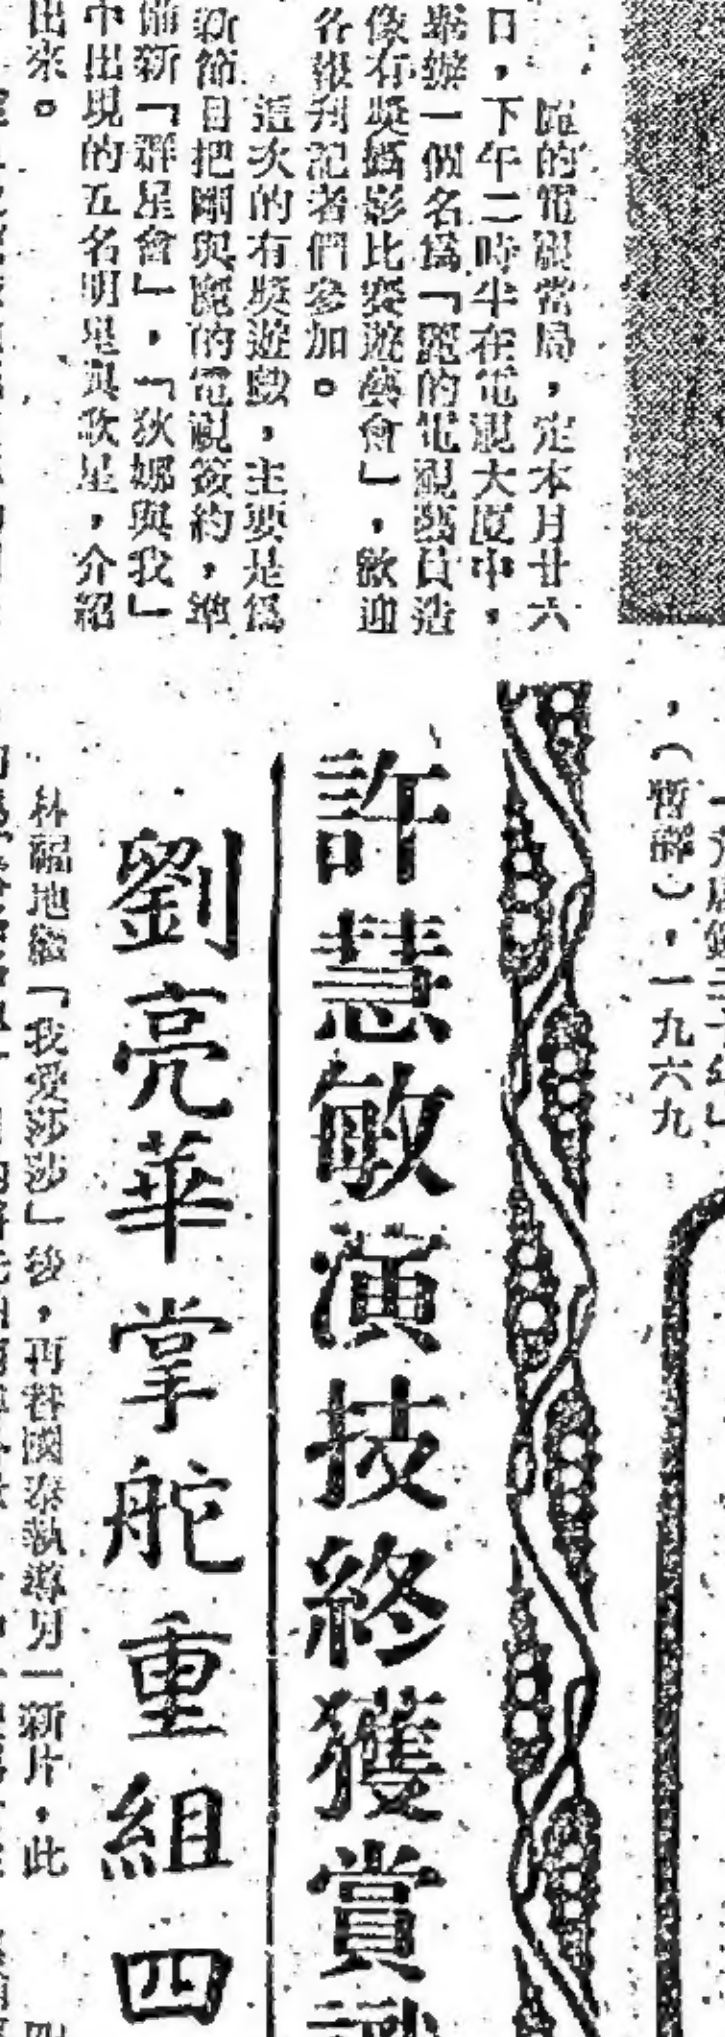 麗的電視當局，定本月廿六
日，下午二時半在電視大廈中，
舉辦一個名爲「麗的電視藝員造
像有獎攝影比賽遊藝會」，歡迎
各報刊記者們參加。
這次的有獎遊戲，主要是爲
新節目把剛與麗的電視簽約，準
備新「群星會」，「狄娜與我」
中出現的五名明星與歌星，介紹
出來。
，（暫譯），一九六九
許慧敏演技終獲賞識
劉亮華掌舵重組四
林福地繼「我愛莎莎」後，再替國泰執導另一新片，此